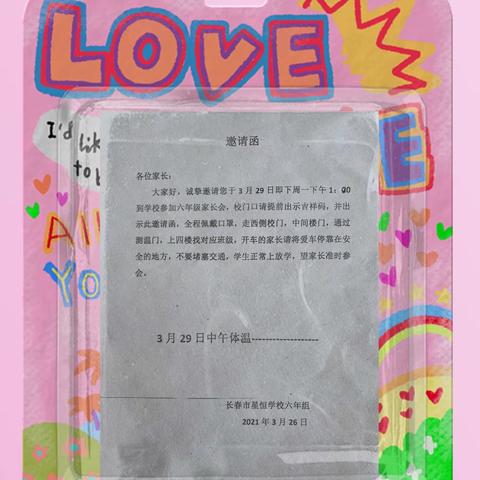 LOVE
I'd lik
to b
All
YO
E
邀请函
各位家长:
大家好,诚挚邀请您于 3 月 29 日即下周一下午 1:00
到学校参加六年级家长会,校门口请提前出示吉祥码,并出
示此邀请函,全程佩戴口罩,走西侧校门,中间楼门,通过
测温门,上四楼找对应班级,开车的家长请将爱车停靠在安
全的地方,不要堵塞交通,学生正常上放学,望家长准时参
会。
3 月 29 日中午体温-------------------
长春市星恒学校六年组
2021 年 3 月 26 日